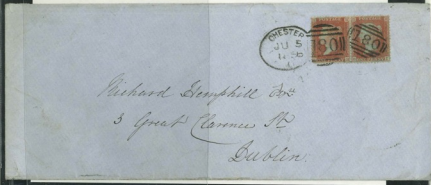 CHESTER
JU 5
180 180
Richard Hemphill Esqr
3 Great Clarence St
Dublin.